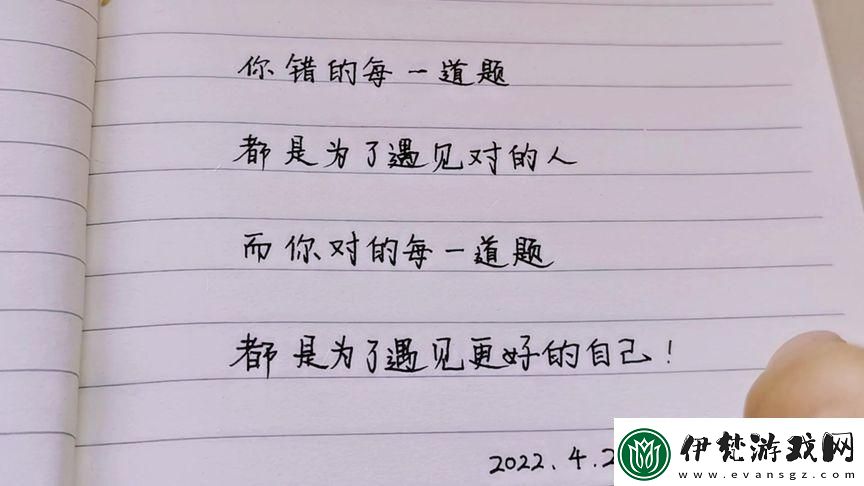 你错的每一道题
都是为了遇见对的人
而你对的每一道题
都是为了遇见更好的自己！
2022.4.2
伊梵游戏网
www.evansgz.com